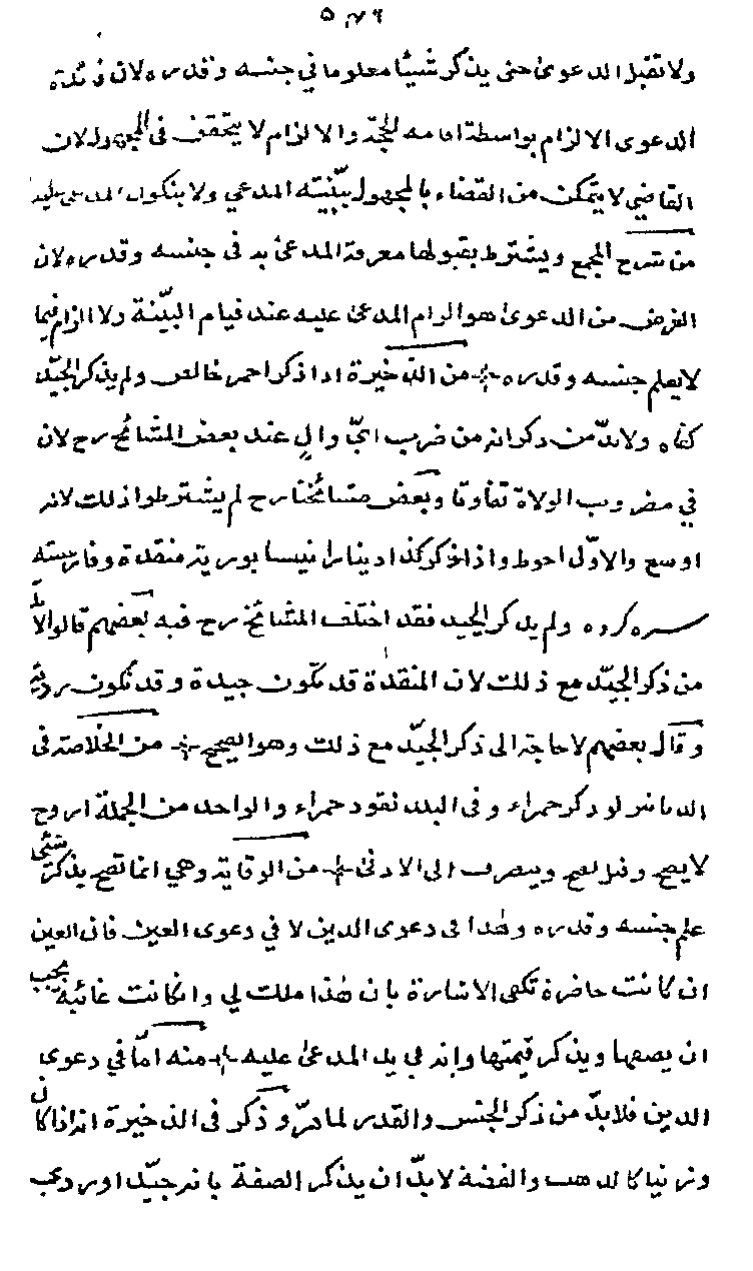 ولا تقبل الدعوىٰ حتى يذكر شيئا معلوما في جنسه وقدره لان فائدة
الدعوى الالزام بواسطة اقامه الحجّة والالزام لا يتحقق فى المجهول لان
القاضي لا يتمكن من القضاء بالمجهول ببّنيته المدعي ولا بنكول المدعى عليه
من شرح المجمع ويشترط بقبولها معرفة المدعىٰ به فى جنسه وقدره لان
الغرض من الدعوىٰ هو الزام المدعىٰ عليه عند قيام البيّنة ولا الزام فيما
لا يعلم جنسه وقدره من الذخيرة اذا ذكر احمر خالص ولم يذكر الجيّد
كفاه ولا بدّ من ذكر انه من ضرب ايّ وال عند بعض المشائخ رح لان
في مضروب الولاة تفاوتا وبعض مشائخنا رح لم يشترطوا ذلك لانه
اوسع والاوّل احوط واذا ذكر كذا دينارا نيسابورية منقدة وفارسيته
سره كرده ولم يذكر الجيد فقد اختلف المشائخ رح فيه بعضهم قالوا لا بدّ
من ذكر الجيّد مع ذلك لان المنقدة قد تكون جيدة وقد تكون رديّة
وقال بعضهم لا حاجة الى ذكر الجيّد مع ذلك وهو الصحيح من الخلاصة فى
الدنانير لو ذكر حمراء وفى البلد نقود حمراء والواحد من الجملة اروج
لا يصح وقيل يصح وينصرف الى الادنىٰ من الوقاية وهي انما تصح بذكر شئ
علم جنسه وقدره وهٰذا فى دعوى الدين لا في دعوى العين فان العين
ان كانت حاضرة تكفى الاشارة بان هٰذا ملك لي وان كانت غائبة يجب
ان يصفها ويذكر قيمتها وانه في يد المدعىٰ عليه منه امّا في دعوى
الدين فلا بدّ من ذكر الجنس والقدر لما مرّ وذكر فى الذخيرة انه اذا كان
وزنيا كالذهب والفضة لا بدّ ان يذكر الصفة بانه جيّد او ردي